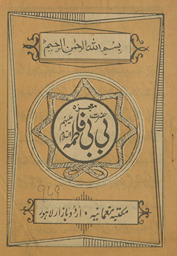 بسم اللہ الرحمن الرحیم
معجزہ
حضرت
بی بی فاطمہ
مکتبہ نعمانیہ ۰ اردو بازار لاہور